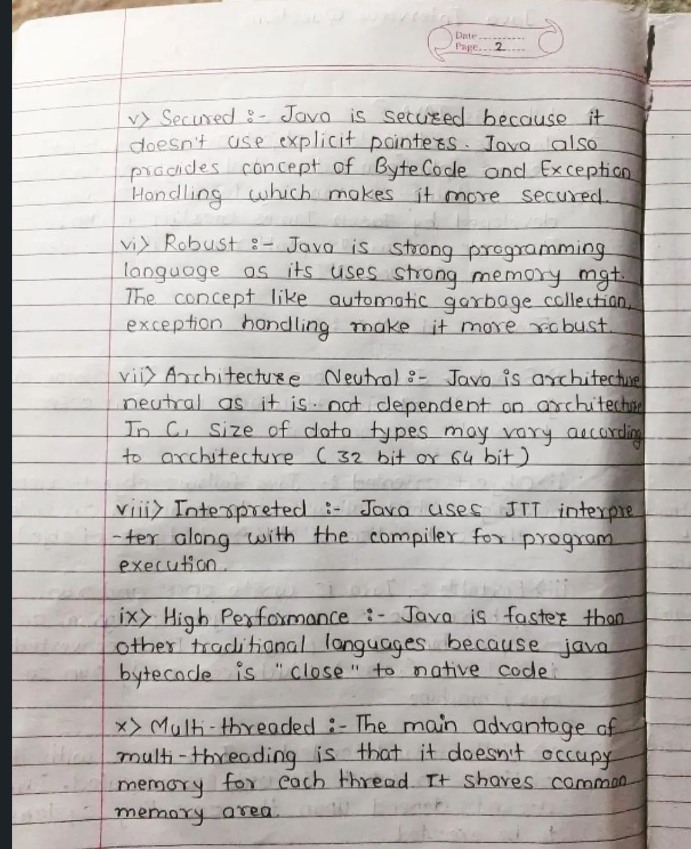 Date............
Page....2......
v> Secured :- Java is secured because it
doesn't use explicit pointers. Java also
provides concept of ByteCode and Exception
Handling which makes it more secured.
vi> Robust :- Java is strong programming
language as its uses strong memory mgt.
The concept like automatic garbage collection,
exception handling make it more robust.
vii> Architecture Neutral :- Java is architecture
neutral as it is not dependent on architecture
In C, size of data types may vary according
to architecture (32 bit or 64 bit)
viii> Interpreted :- Java uses JIT interpre
-ter along with the compiler for program
execution.
ix> High Performance :- Java is faster than
other traditional languages because java
bytecode is "close" to native code.
x> Multi-threaded :- The main advantage of
multi-threading is that it doesn't occupy
memory for each thread It shares common
memory area.